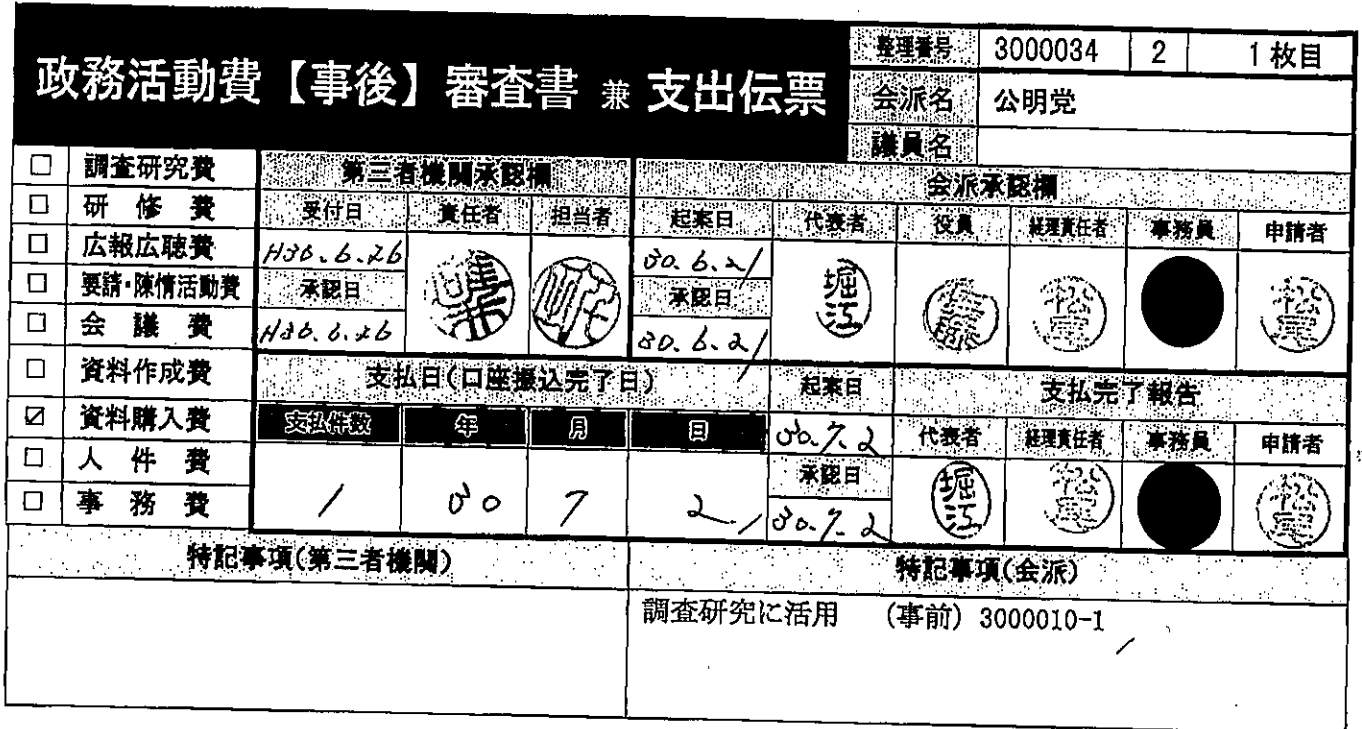 政務活動費【事後】審査書 兼 支出伝票
整理番号 3000034 2 1枚目
会派名 公明党
議員名
□ 調査研究費
□ 研修費
□ 広報広聴費
□ 要請・陳情活動費
□ 会議費
□ 資料作成費
☑ 資料購入費
□ 人件費
□ 事務費
第三者機関承認欄
受付日 責任者 担当者
H30.6.26
承認日
H30.6.26
会派承認欄
起案日 代表者 役員 経理責任者 事務員 申請者
30.6.21
堀江
承認日
30.6.21
支払日(口座振込完了日)
支払件数 年 月 日
1 30 7 2
起案日
30.7.2
承認日
30.7.2
支払完了報告
代表者 経理責任者 事務員 申請者
堀江
特記事項(第三者機関)
特記事項(会派)
調査研究に活用 (事前) 3000010-1